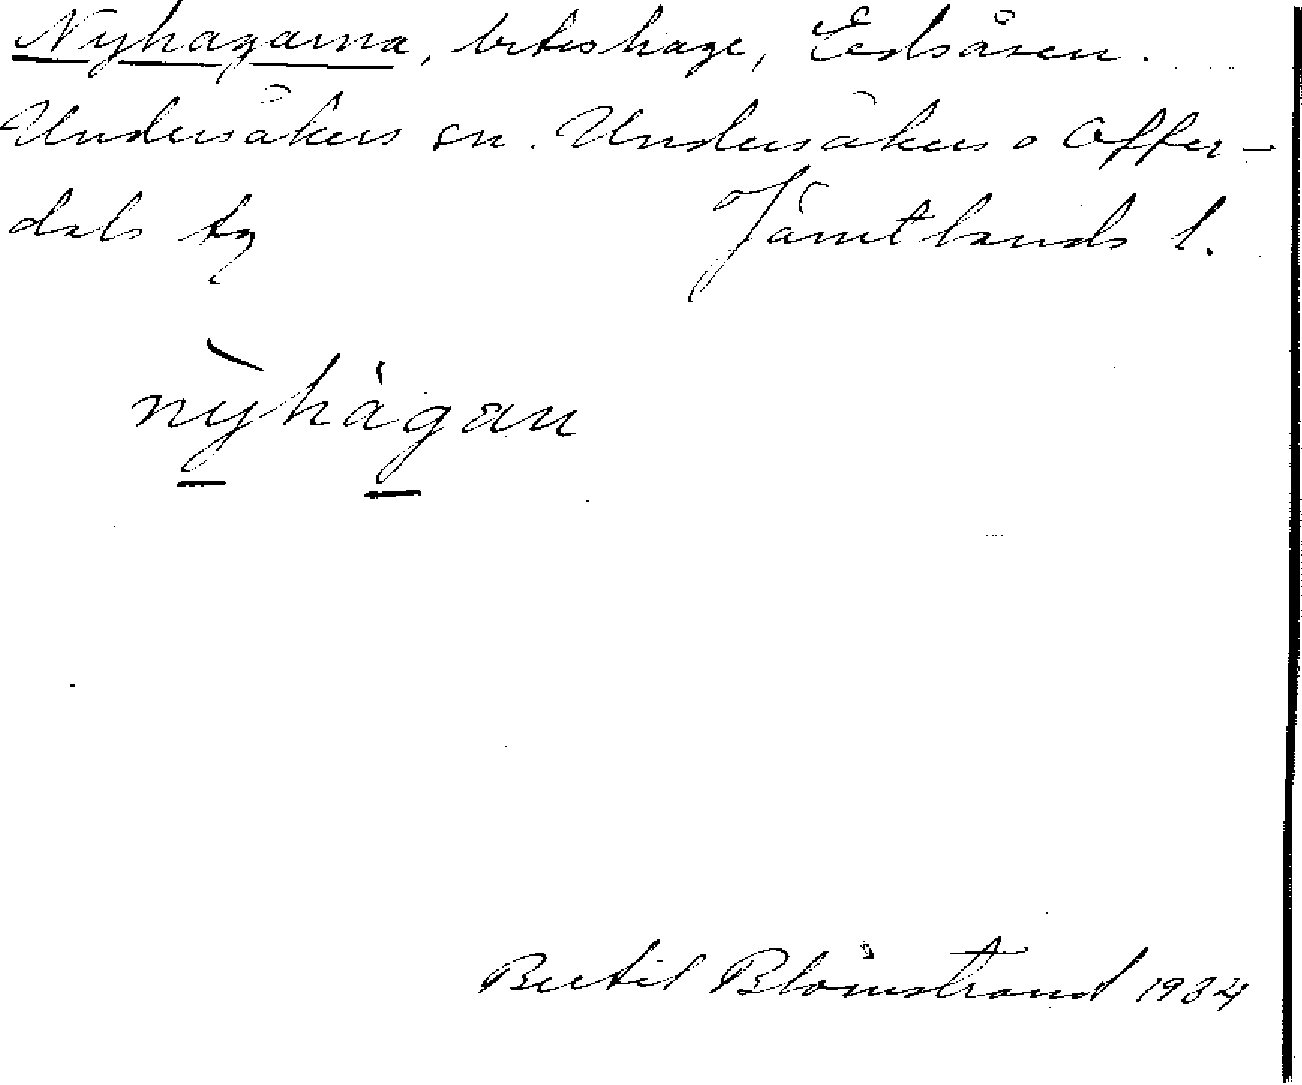 Nyhagarna, beteshage, Edsåsen.
Undersåkers sn. Undersåkers o Offer-
dals tg Jämtlands l.
nỳhágan
Bertil Blomstrand 1934